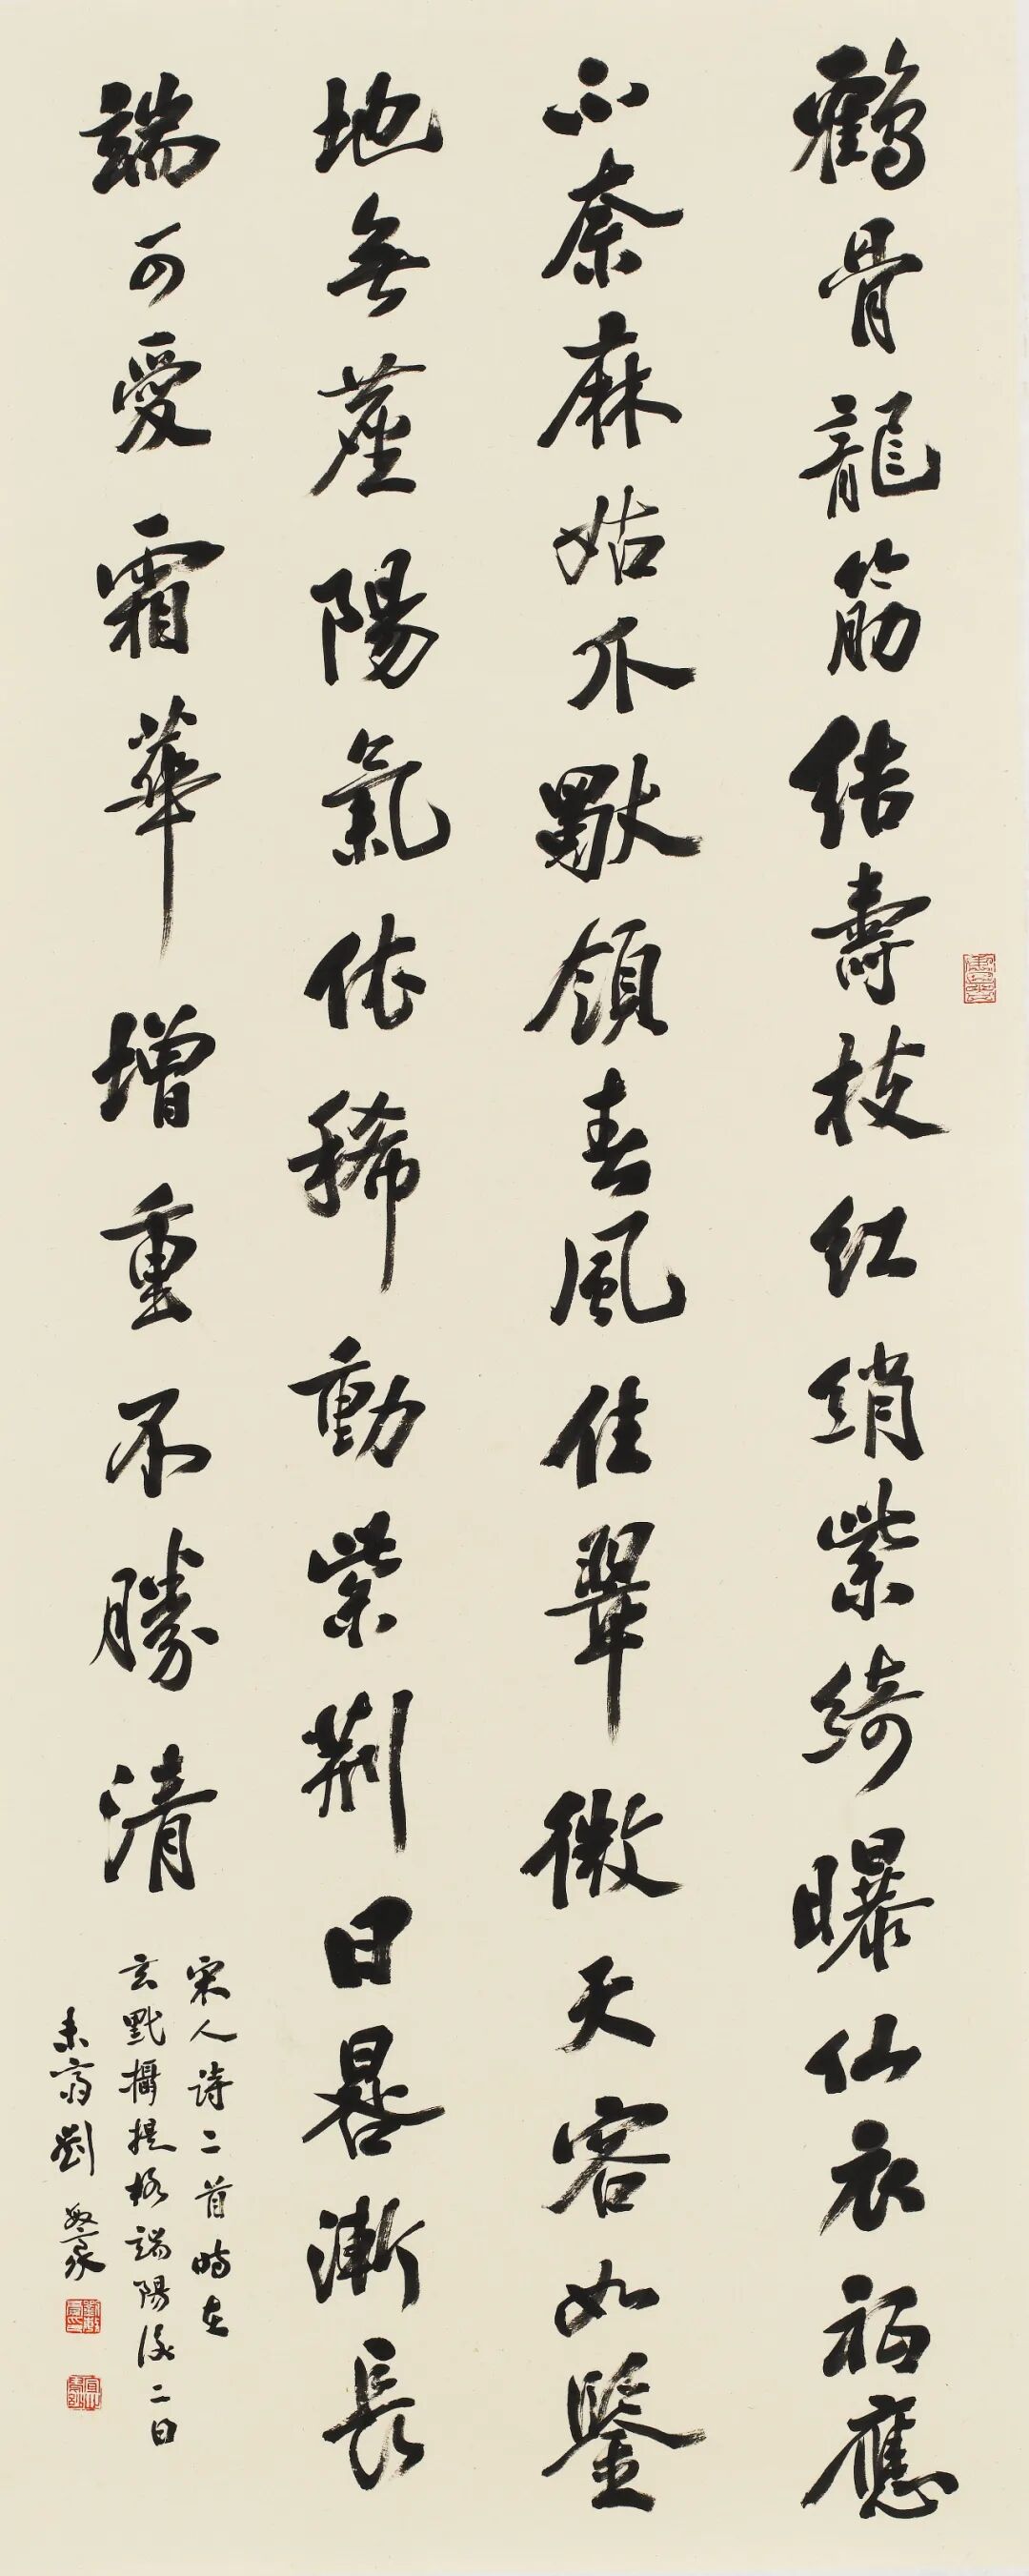 鶴骨龍筋結壽枝紅綃紫綺曝仙衣祗應
不奈麻姑爪默領春風佳翠微天容如鑒
地無塵陽氣依稀動紫荊日晷漸長
端可愛霜華增重不勝清
宋人詩二首時在
玄黓攝提格端陽後二日
未齋劉